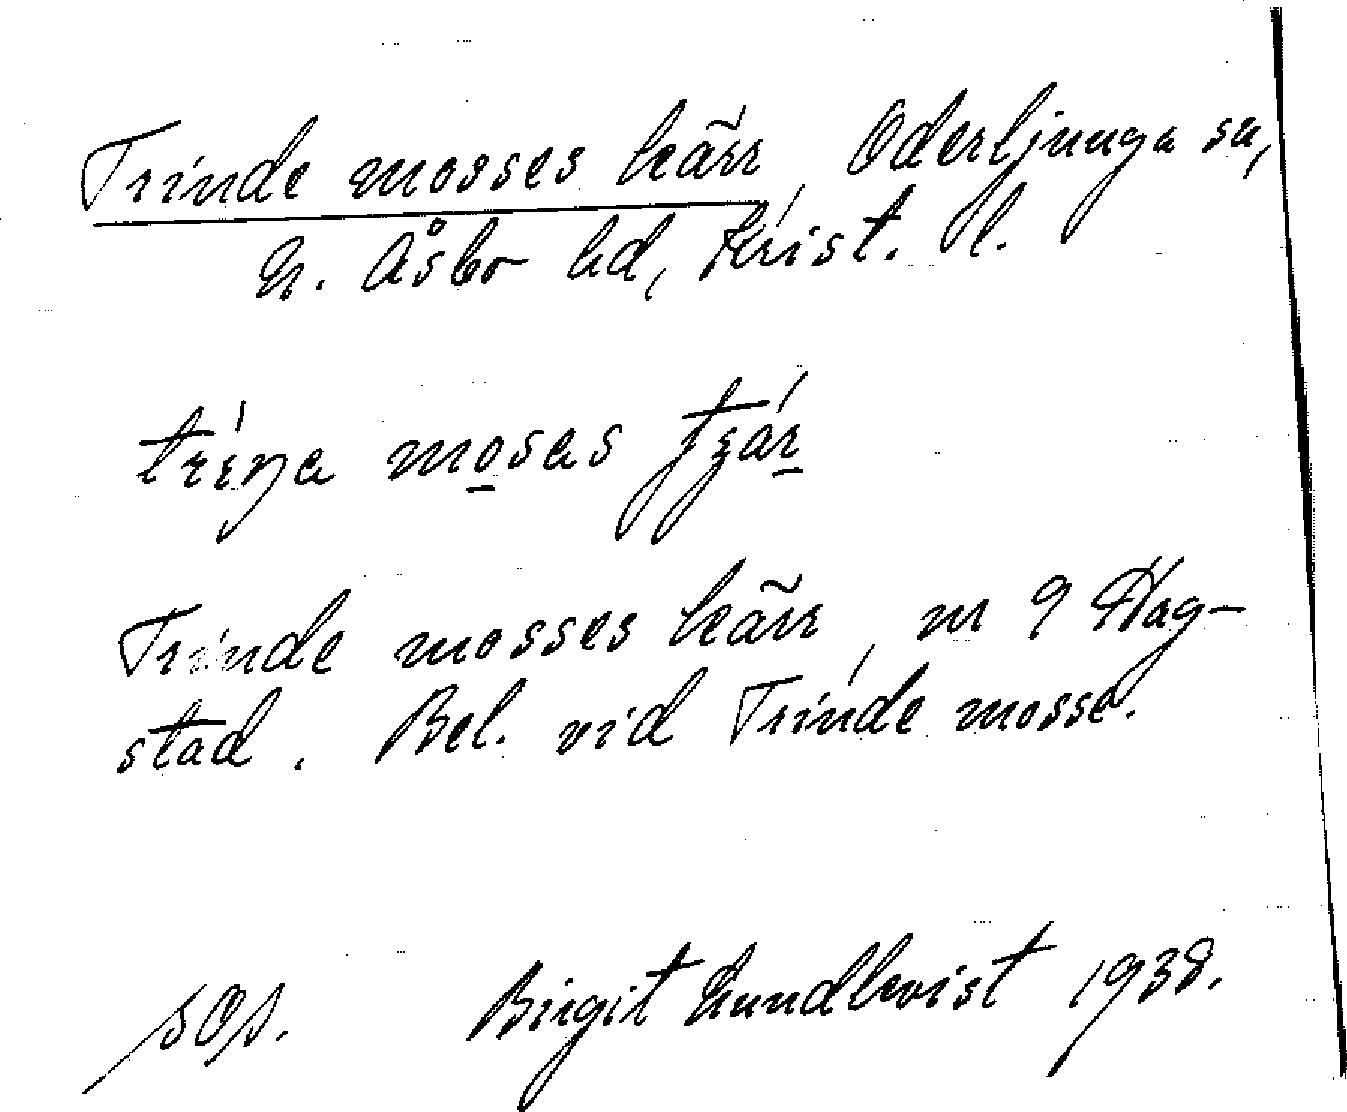 Trinde mosses kärr, Oderljunga sn,
N. Åsbo hd, Krist. l.
Trinde mosses kärr, nr 9 Hag-
stad. Bel. vid Trinde mosse.
Birgit Lundkvist 1938.